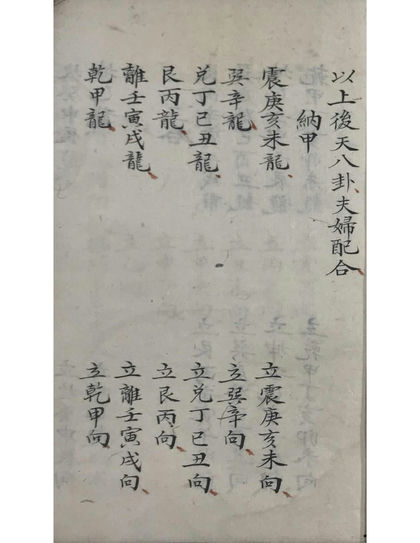 以上後天八卦夫婦配合
納甲
震庚亥未龍　立震庚亥未向
巽辛龍　立巽辛向
兌丁巳丑龍　立兌丁巳丑向
艮丙龍　立艮丙向
離壬寅戌龍　立離壬寅戌向
乾甲龍　立乾甲向